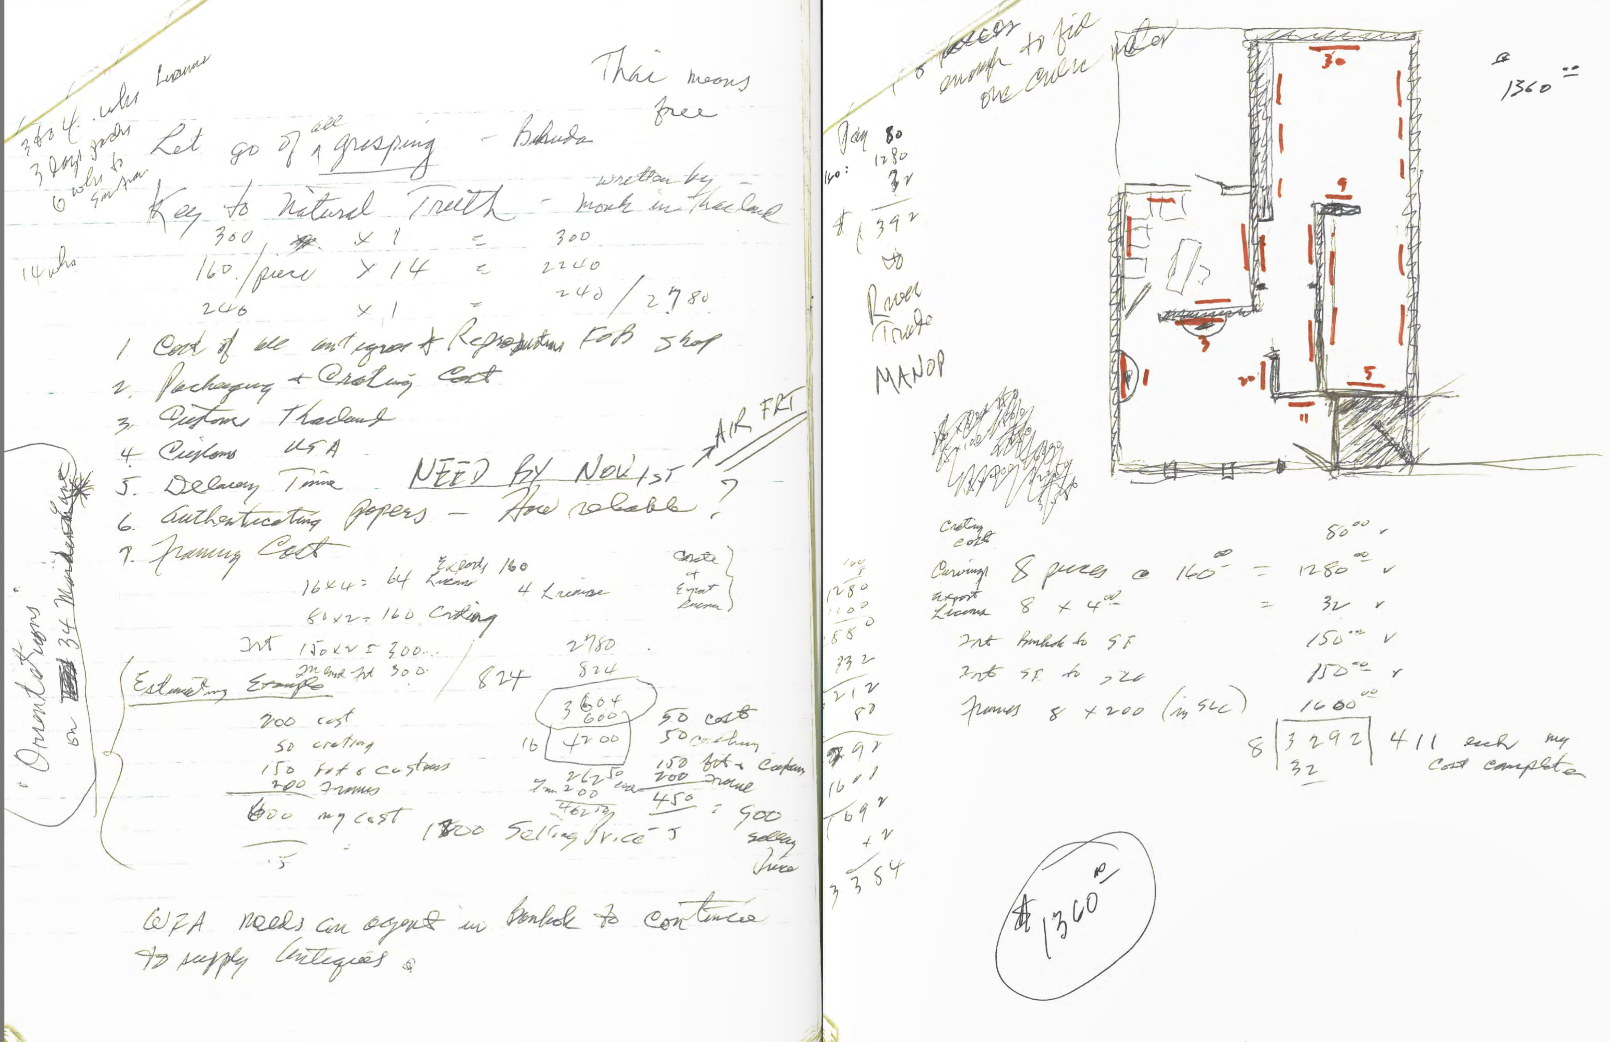 Thai means
free
3 to 4 wks License
3 days
6 wks to
Let go of all grasping - Buhuda
Key to Natural Truth - written by
monk in Thailand
300 x 1 = 300
14 wks
160/piece x 14 = 2240
240 x 1 = 240 / 2780
1. Cost of all antiques + Reproductions FOB Shop
2. Packaging + Crating Cost
3. Customs Thailand
4. Customs USA
5. Delivery Time NEED BY NOV 1ST
AIR FRT
6. Authenticating papers - Are reliable?
7. Framing Cost
16x4 = 64 Export License 160
4 License
Crate
+
Export
License
80x2 = 160 Crating
Frt 150x2 = 300
300 / 824
2780
824
3604
600
16 4200
262 50
200
462 50
Estimating Example
200 cost
50 crating
150 frt & customs
200 frames
600 my cost
1800 Selling Price
50 cost
50 crating
150 frt & Customs
200 frame
450 = 900
selling
Price
"Orientations"
on 34
WFA needs an agent in Bankok to continue
to supply Antiques.
pieces
enough to fill
one cubic meter
Pay 80
1280
32
$ 1392
to
River
Trade
MANOP
30
9
3
1
20
5
11
$ 1360 00
Crating
Cost 80 00 ✓
Carvings 8 pieces @ 160 00 = 1280 00 ✓
Export
License 8 x 4 00 = 32 ✓
Frt Bankok to SF 150 00 ✓
Frt SF to 150 00 ✓
Frames 8 x 200 (in SLC) 1600 00
8 3292 411 each my
32 cost complete
160
8
1280
1600
332
212
80
1600
1692
x 2
3384
$ 1360 00